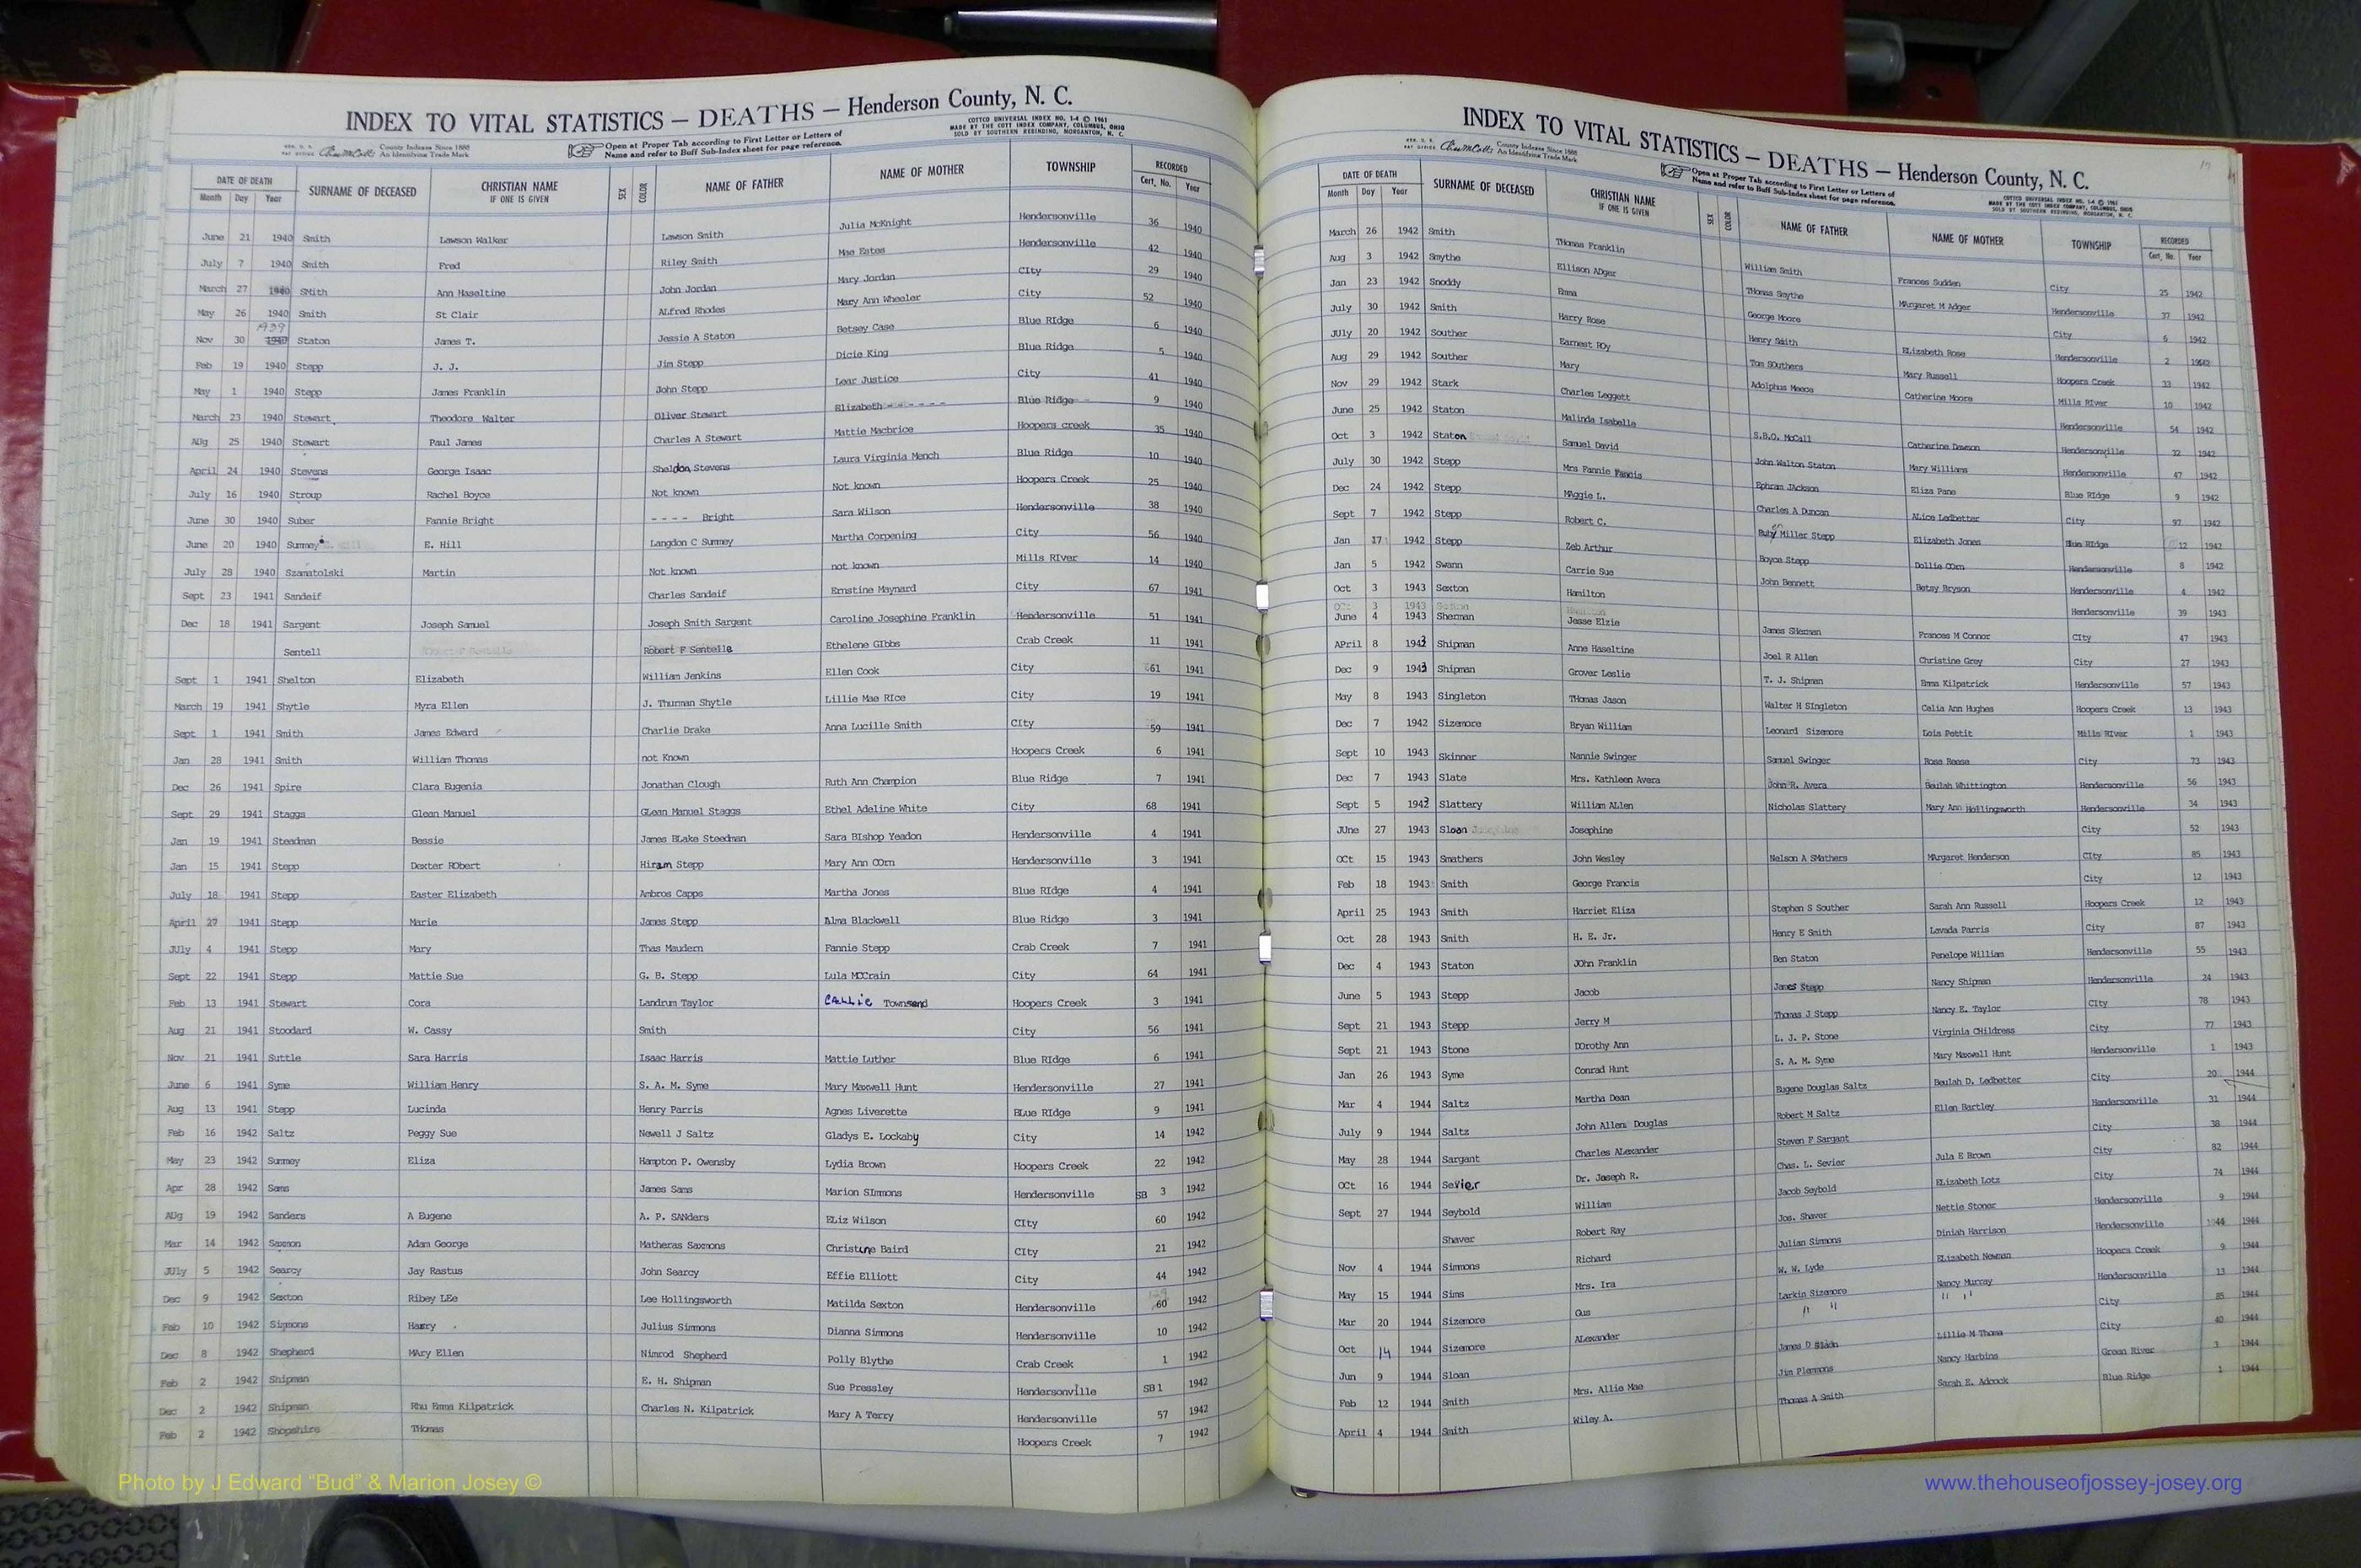 INDEX TO VITAL STATISTICS — DEATHS — Henderson County, N. C.
COTTCO UNIVERSAL INDEX NO. 1-4 © 1961
MADE BY THE COTT INDEX COMPANY, COLUMBUS, OHIO
SOLD BY SOUTHERN REBINDING, MORGANTON, N. C.
County Indexes Since 1888
An Identifying Trade Mark
Open at Proper Tab according to First Letter or Letters of
Name and refer to Buff Sub-Index sheet for page reference.
DATE OF DEATH SURNAME OF DECEASED CHRISTIAN NAME IF ONE IS GIVEN SEX COLOR NAME OF FATHER NAME OF MOTHER TOWNSHIP RECORDED
Month Day Year Cert. No. Year
June 21 1940 Smith Lawson Walker Lawson Smith Julia McKnight Hendersonville 36 1940
July 7 1940 Smith Fred Riley Smith Mae Estes Hendersonville 42 1940
March 27 1940 SMith Ann Haseltine John Jordan Mary Jordan CIty 29 1940
May 26 1940 Smith St Clair ALfred Rhodes Mary Ann Wheeler City 52 1940
Nov 30 1939 Staton James T. Jessie A Staton Betsey Case Blue RIdge 6 1940
Feb 19 1940 Stepp J. J. Jim Stepp Dicie King Blue Ridge 5 1940
May 1 1940 Stepp James Franklin John Stepp Lear Justice City 41 1940
March 23 1940 Stewart Theodore Walter Oliver Stewart Elizabeth ------ Blue Ridge 9 1940
AUg 25 1940 Stewart Paul James Charles A Stewart Mattie Macbrice Hoopers creek 35 1940
April 24 1940 Stevens George Isaac Sheldon Stevens Laura Virginia Mench Blue Ridge 10 1940
July 16 1940 Stroup Rachel Boyce Not known Not known Hoopers Creek 25 1940
June 30 1940 Suber Fannie Bright ---- Bright Sara Wilson Hendersonville 38 1940
June 20 1940 Summey E. Hill Langdon C Summey Martha Corpening City 56 1940
July 28 1940 Szamatolski Martin Not known not known Mills RIver 14 1940
Sept 23 1941 Sandeif Charles Sandeif Ernstine Maynard City 67 1941
Dec 18 1941 Sargent Joseph Samuel Joseph Smith Sargent Caroline Josephine Franklin Hendersonville 51 1941
Sentell Robert F Sentelle Ethelene GIbbs Crab Creek 11 1941
Sept 1 1941 Shelton Elizabeth William Jenkins Ellen Cook City 61 1941
March 19 1941 Shytle Myra Ellen J. Thurman Shytle Lillie Mae RIce City 19 1941
Sept 1 1941 Smith James Edward Charlie Drake Anna Lucille Smith CIty 59 1941
Jan 28 1941 Smith William Thomas not Known Hoopers Creek 6 1941
Dec 26 1941 Spire Clara Eugenia Jonathan Clough Ruth Ann Champion Blue Ridge 7 1941
Sept 29 1941 Staggs Glean Manuel GLean Manuel Staggs Ethel Adeline White City 68 1941
Jan 19 1941 Steadman Bessie James BLake Steedman Sara BIshop Yeadon Hendersonville 4 1941
Jan 15 1941 Stepp Dexter RObert Hiram Stepp Mary Ann COrn Hendersonville 3 1941
July 18 1941 Stepp Easter Elizabeth Ambros Capps Martha Jones Blue RIdge 4 1941
April 27 1941 Stepp Marie James Stepp Alma Blackwell Blue Ridge 3 1941
JUly 4 1941 Stepp Mary Thas Maudern Fannie Stepp Crab Creek 7 1941
Sept 22 1941 Stepp Mattie Sue G. B. Stepp Lula MCCrain City 64 1941
Feb 13 1941 Stewart Cora Landrum Taylor CALLie Townsend Hoopers Creek 3 1941
Aug 21 1941 Stoodard W. Cassy Smith City 56 1941
Nov 21 1941 Suttle Sara Harris Isaac Harris Mattie Luther Blue RIdge 6 1941
June 6 1941 Syme William Henry S. A. M. Syme Mary Maxwell Hunt Hendersonville 27 1941
Aug 13 1941 Stepp Lucinda Henry Parris Agnes Liverette BLue RIdge 9 1941
Feb 16 1942 Saltz Peggy Sue Newell J Saltz Gladys E. Lockaby City 14 1942
May 23 1942 Summey Eliza Hampton P. Owensby Lydia Brown Hoopers Creek 22 1942
Apr 28 1942 Sams James Sams Marion SImmons Hendersonville SB 3 1942
AUg 19 1942 Sanders A Eugene A. P. SANders ELiz Wilson CIty 60 1942
Mar 14 1942 Saxmon Adam George Matheras Saxmons Christine Baird CIty 21 1942
JUly 5 1942 Searcy Jay Rastus John Searcy Effie Elliott City 44 1942
Dec 9 1942 Sexton Ribey LEe Lee Hollingsworth Matilda Sexton Hendersonville 60 1942
Feb 10 1942 Simmons Harry Julius Simmons Dianna Simmons Hendersonville 10 1942
Dec 8 1942 Shepherd MAry Ellen Nimrod Shepherd Polly Blythe Crab Creek 1 1942
Feb 2 1942 Shipman E. H. Shipman Sue Pressley Hendersonville SB 1 1942
Dec 2 1942 Shipman Rhu Emma Kilpatrick Charles N. Kilpatrick Mary A Terry Hendersonville 57 1942
Feb 2 1942 Shopshire THomas Hoopers Creek 7 1942
INDEX TO VITAL STATISTICS — DEATHS — Henderson County, N. C.
County Indexes Since 1888
An Identifying Trade Mark
Open at Proper Tab according to First Letter or Letters of
Name and refer to Buff Sub-Index sheet for page reference.
COTTCO UNIVERSAL INDEX NO. 1-4 © 1961
MADE BY THE COTT INDEX COMPANY, COLUMBUS, OHIO
SOLD BY SOUTHERN REBINDING, MORGANTON, N. C.
DATE OF DEATH SURNAME OF DECEASED CHRISTIAN NAME IF ONE IS GIVEN SEX COLOR NAME OF FATHER NAME OF MOTHER TOWNSHIP RECORDED
Month Day Year Cert. No. Year
March 26 1942 Smith THomas Franklin William Smith Frances Sudden City 25 1942
Aug 3 1942 Smythe Ellison ADger THomas Smythe MArgaret M Adger Hendersonville 37 1942
Jan 23 1942 Snoddy Emma George Moore City 6 1942
July 30 1942 Smith Harry Rose Henry Smith ELizabeth Rose Hendersonville 2 1942
JUly 20 1942 Souther Earnest ROy Tom SOuthers Mary Russell Hoopers Creek 33 1942
Aug 29 1942 Souther Mary Adolphus Meece Catherine Moore Mills RIver 10 1942
Nov 29 1942 Stark Charles Leggett Hendersonville 54 1942
June 25 1942 Staton Malinda Isabelle S.B.O. McCall Catherine Dawson Hendersonville 32 1942
Oct 3 1942 Staton Samuel David John Walton Staton Mary Williams Hendersonville 47 1942
July 30 1942 Stepp Mrs Fannie Ephram JAckson Eliza Pane Blue RIdge 9 1942
Dec 24 1942 Stepp MAggie L. Charles A Duncan ALice Ledbetter City 97 1942
Sept 7 1942 Stepp Robert C. Miller Stepp Elizabeth Jones Blue RIdge 12 1942
Jan 17 1942 Stepp Zeb Arthur Boyce Stepp Dollie COrn Hendersonville 8 1942
Jan 5 1942 Swann Carrie Sue John Bennett Betsy Bryson Hendersonville 4 1942
Oct 3 1943 Sexton Hamilton Hendersonville 39 1943
June 4 1943 Sherman Jesse Elzie James SHerman Frances M Connor CIty 47 1943
APril 8 1943 Shipman Anne Haseltine Joel R Allen Christine Grey City 27 1943
Dec 9 1943 Shipman Grover Leslie T. J. Shipman Emma Kilpatrick Hendersonville 57 1943
May 8 1943 Singleton THomas Jason Walter H SIngleton Celia Ann Hughes Hoopers Creek 13 1943
Dec 7 1942 Sizemore Bryan William Leonard Sizemore Lois Pettit Mills RIver 1 1943
Sept 10 1943 Skinner Nannie Swinger Samuel Swinger Rose Reese City 73 1943
Dec 7 1943 Slate Mrs. Kathleen Avera John R. Avera Beulah Whittington Hendersonville 56 1943
Sept 5 1943 Slattery William ALlen Nicholas Slattery Mary Ann Hollingsworth Hendersonville 34 1943
JUne 27 1943 Sloan Josephine City 52 1943
OCt 15 1943 Smathers John Wesley Nelson A SMathers MArgaret Henderson CIty 85 1943
Feb 18 1943 Smith George Francis City 12 1943
April 25 1943 Smith Harriet Eliza Stephen S Souther Sarah Ann Russell Hoopers Creek 12 1943
Oct 28 1943 Smith H. E. Jr. Henry E Smith Lavada Parris City 87 1943
Dec 4 1943 Staton JOhn Franklin Ben Staton Penelope William Hendersonville 55 1943
June 5 1943 Stepp Jacob James Stepp Nancy Shipman Hendersonville 24 1943
Sept 21 1943 Stepp Jerry M Thomas J Stepp Nancy E. Taylor CIty 78 1943
Sept 21 1943 Stone DOrothy Ann L. J. P. Stone Virginia CHildress City 77 1943
Jan 26 1943 Syme Conrad Hunt S. A. M. Syme Mary Maxwell Hunt Hendersonville 1 1943
Mar 4 1944 Saltz Martha Dean Eugene Douglas Saltz Beulah D. Ledbetter City 20 1944
July 9 1944 Saltz John Allen Douglas Robert M Saltz Ellen Bartley Hendersonville 31 1944
May 28 1944 Sargant Charles ALexander Steven F Sargant City 38 1944
OCt 16 1944 Sevier Dr. Joseph R. Chas. L. Sevier Jula E Brown City 82 1944
Sept 27 1944 Seybold William Jacob Seybold ELizabeth Lotz City 74 1944
Shaver Robert Ray Jos. Shaver Nettie Stoner Hendersonville 9 1944
Nov 4 1944 Simmons Richard Julian Simmons Diniah Harrison Hendersonville 44 1944
May 15 1944 Sims Mrs. Ira W. W. Lyde ELizabeth Newman Hoopers Creek 9 1944
Mar 20 1944 Sizemore Gus Larkin Sizemore Nancy Murray Hendersonville 13 1944
Oct 14 1944 Sizemore ALexander " " " " City 85 1944
Jun 9 1944 Sloan James D Lillie M Thoma City 40 1944
Feb 12 1944 Smith Mrs. Allie Mae Jim Plemmons Nancy Harbins Green River 3 1944
April 4 1944 Smith Wiley A. Thomas A Smith Sarah E. Adcock Blue Ridge 1 1944
Photo by J Edward “Bud” & Marion Josey ©
www.thehouseofjossey-josey.org